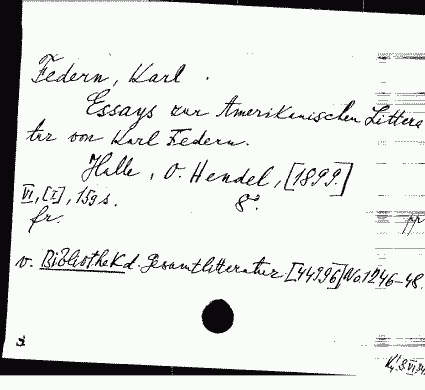 Federn, Karl .
Essays zur Amerikanischen Littera
tur von Karl Federn.
Halle, O. Hendel, [1899.]
VI, [I], 159 s. 8º.
fr.
v. Bibliothek d. Gesamtlitteratur [44996] No. 1246-48.